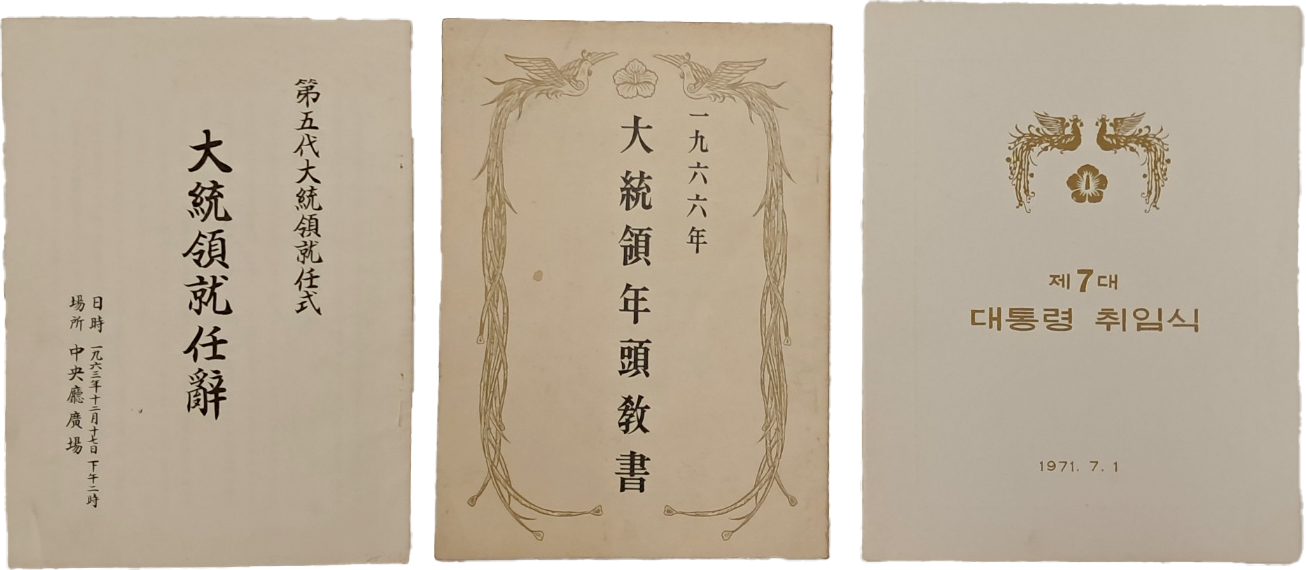 第五代大統領就任式
大統領就任辭
日時 一九六三年十二月十七日 下午二時
場所 中央廳廣場
一九六六年
大統領年頭敎書
제7대
대통령 취임식
1971. 7. 1